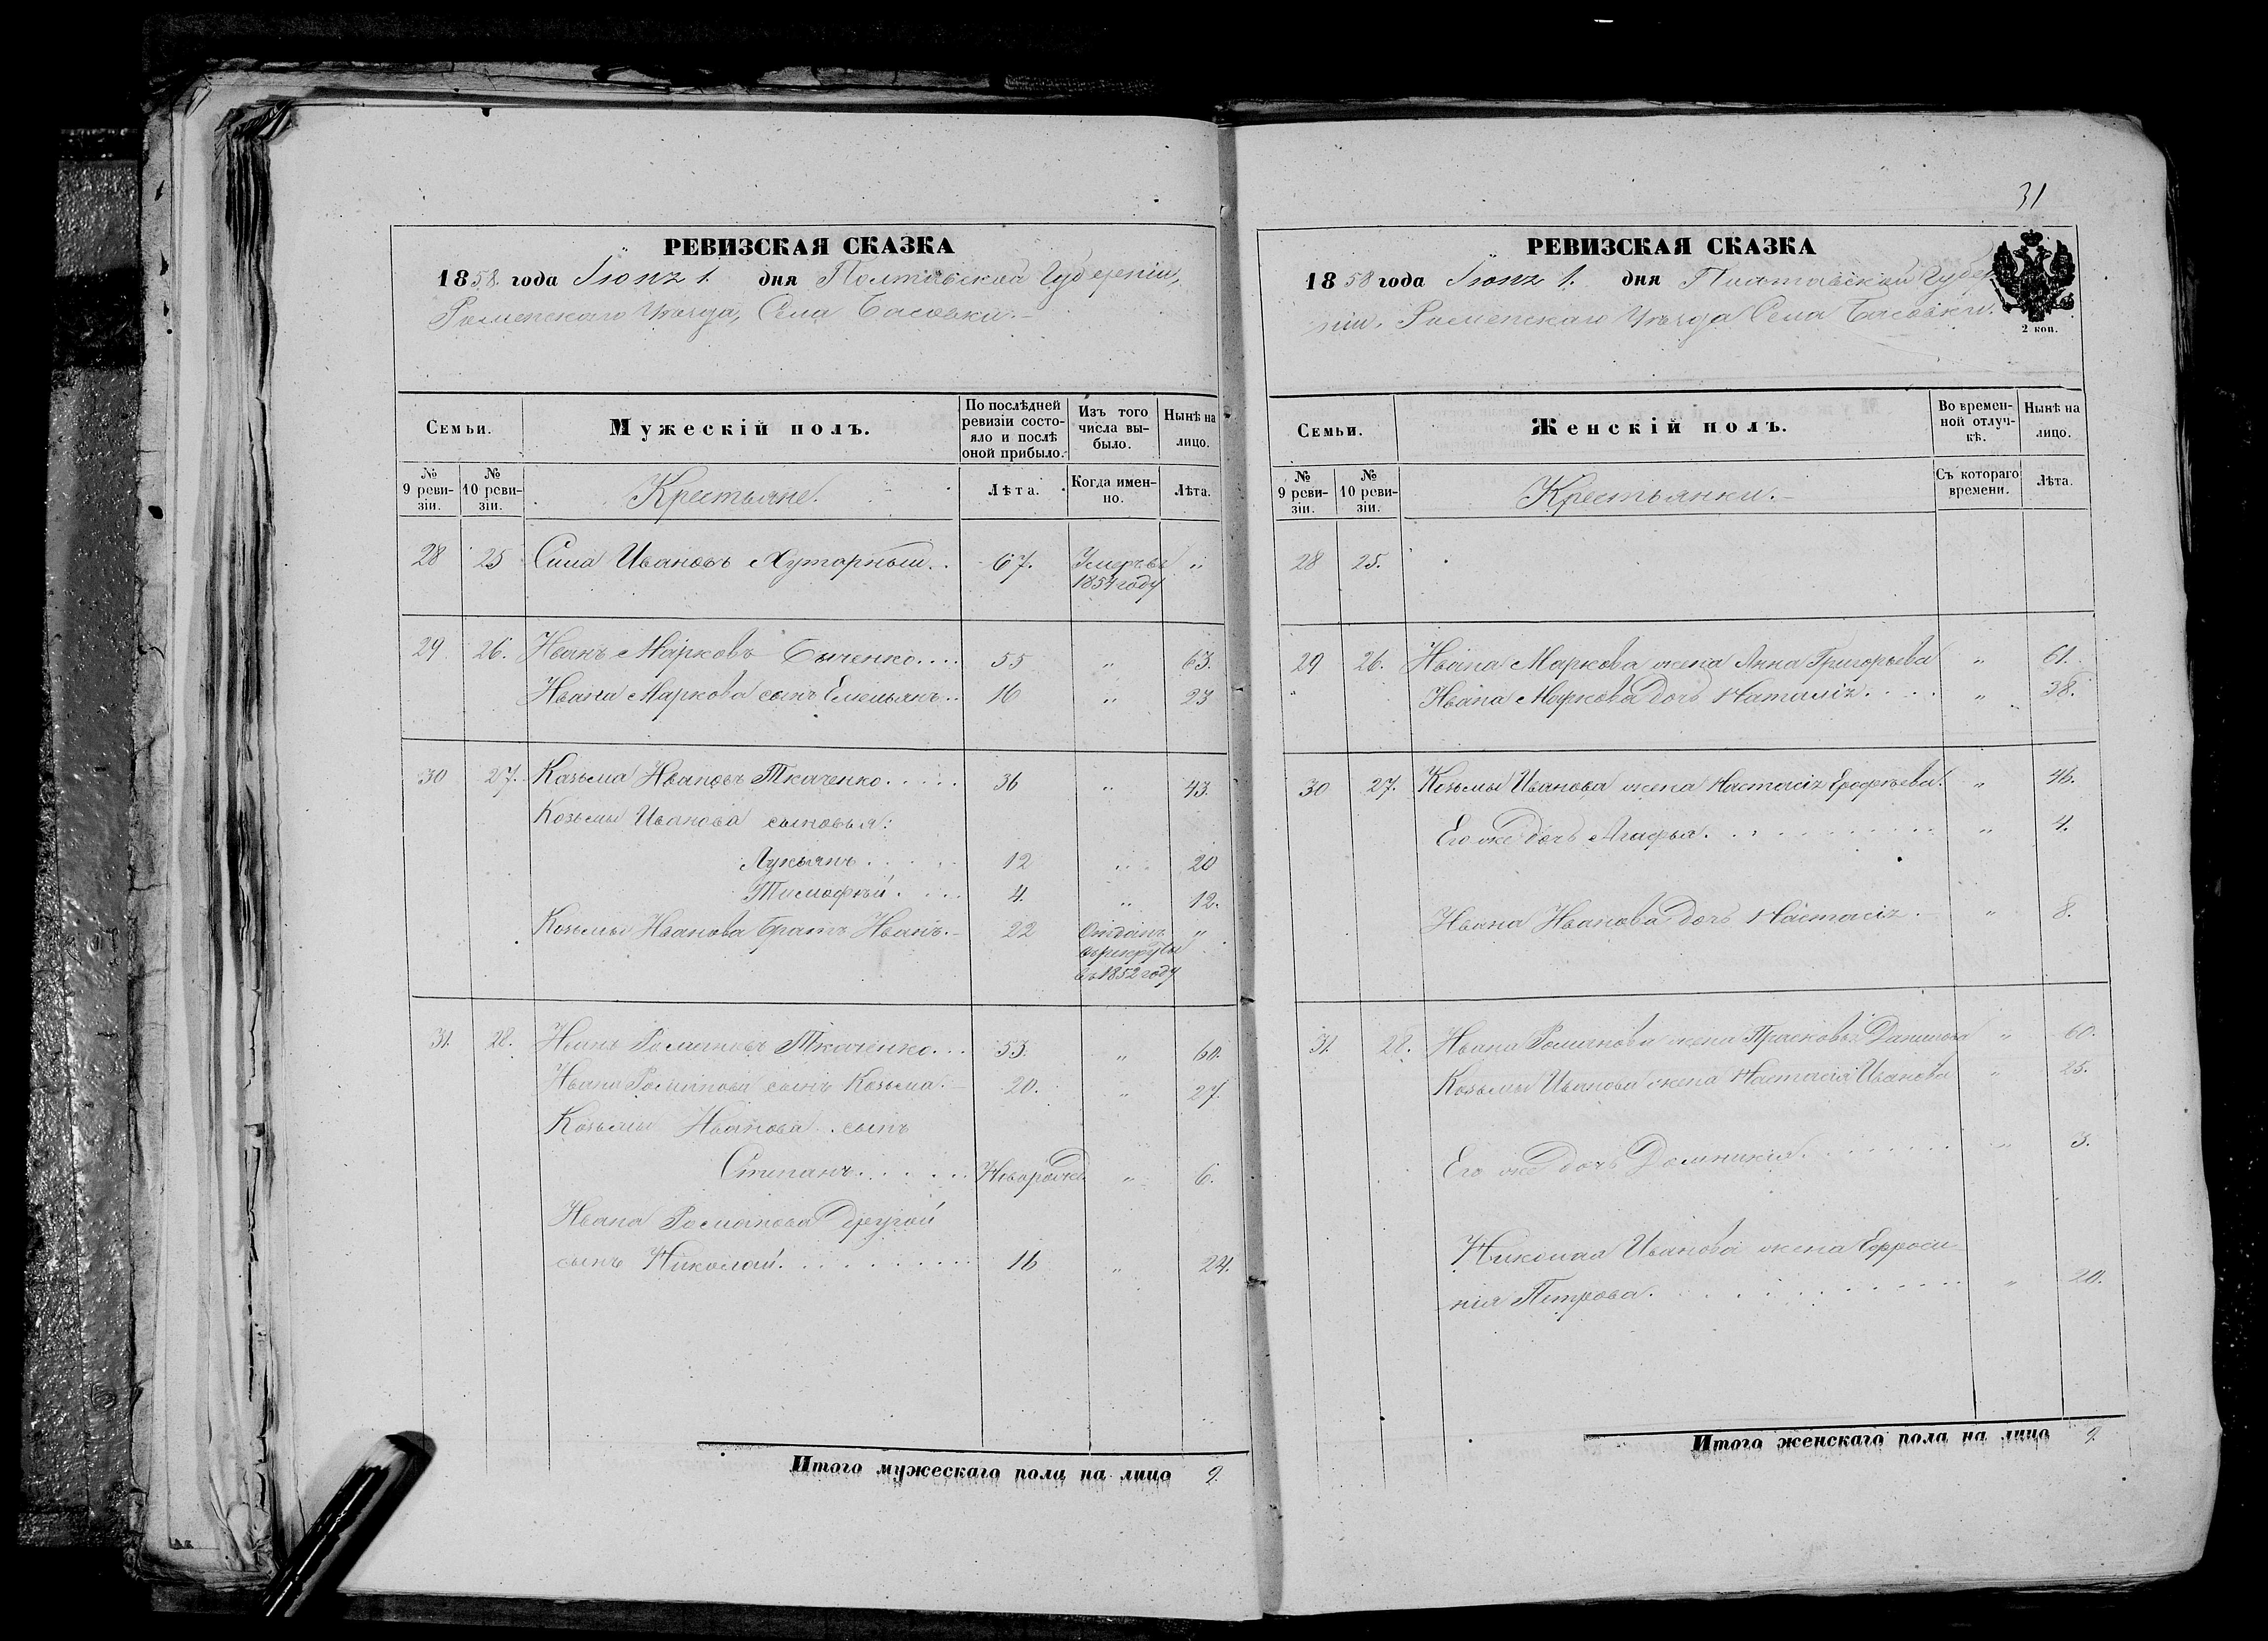 РЕВИЗСКАЯ СКАЗКА
1858. года Іюнѧ 1. дня Полтавской Губерніи,
Роменскаго Уѣзда, Села Басовки.
Семьи.
Мужескій полъ.
По послѣдней ревизіи состояло и послѣ оной прибыло.
Изъ того числа выбыло.
Нынѣ на лицо.
№ 9 ревизіи.
№ 10 ревизіи.
Крестьяне.
Лѣта.
Когда именно.
Лѣта.
28 25 Сила Ивановъ Хуторный.. 67. Умеръ въ "
1854 году
29 26. Иванъ Марковъ .... 55 " 63.
Ивана Маркова сынъ Емельянъ.. 16 " 23
30 27. Козьма Ивановъ Ткаченко..... 36 " 43.
Козьмы Иванова сыновья:
Лукьянъ..... 12 " 20
Тимофѣй.... 4. " 12.
Козьмы Иванова братъ Иванъ. 22 Отданъ "
въ рекруты
въ 1852 году
31. 28. Иванъ Романовъ Ткаченко... 53. " 60.
Ивана Романова сынъ Козьма. 20. " 27.
Козьмы Иванова сынъ
Степанъ...... Новорожд. " 6.
Ивана Романова другой
сынъ Николай.......... 16 " 24.
Итого мужескаго пола на лицо 9.
31
РЕВИЗСКАЯ СКАЗКА
1858 года Іюнѧ 1. дня Полтавской Губер
ніи, Роменскаго Уѣзда Села Басовки.
2 коп.
Семьи.
Женскій полъ.
Во временной отлучкѣ.
Нынѣ на лицо.
№ 9 ревизіи.
№ 10 ревизіи.
Крестьянки.
Съ котораго времени.
Лѣта.
28 25.
29 26. Ивана Маркова жена Анна Григорьева " 61.
" Ивана Маркова дочь Наталіѧ.... " 38.
30 27. Козьмы Иванова жена Настасіѧ Ерофѣева. " 46.
Его же дочь Агафья............ " 4.
Ивана Иванова дочь Настасіѧ. " 8.
31. 28. Ивана Романова жена Прасковья Данилова " 60.
Козьмы Иванова жена Настасія Иванова " 25.
Его же дочь Домникія........ " 3.
Николая Иванова жена Ефроси
нія Петрова............ " 20.
Итого женскаго пола на лицо 9.